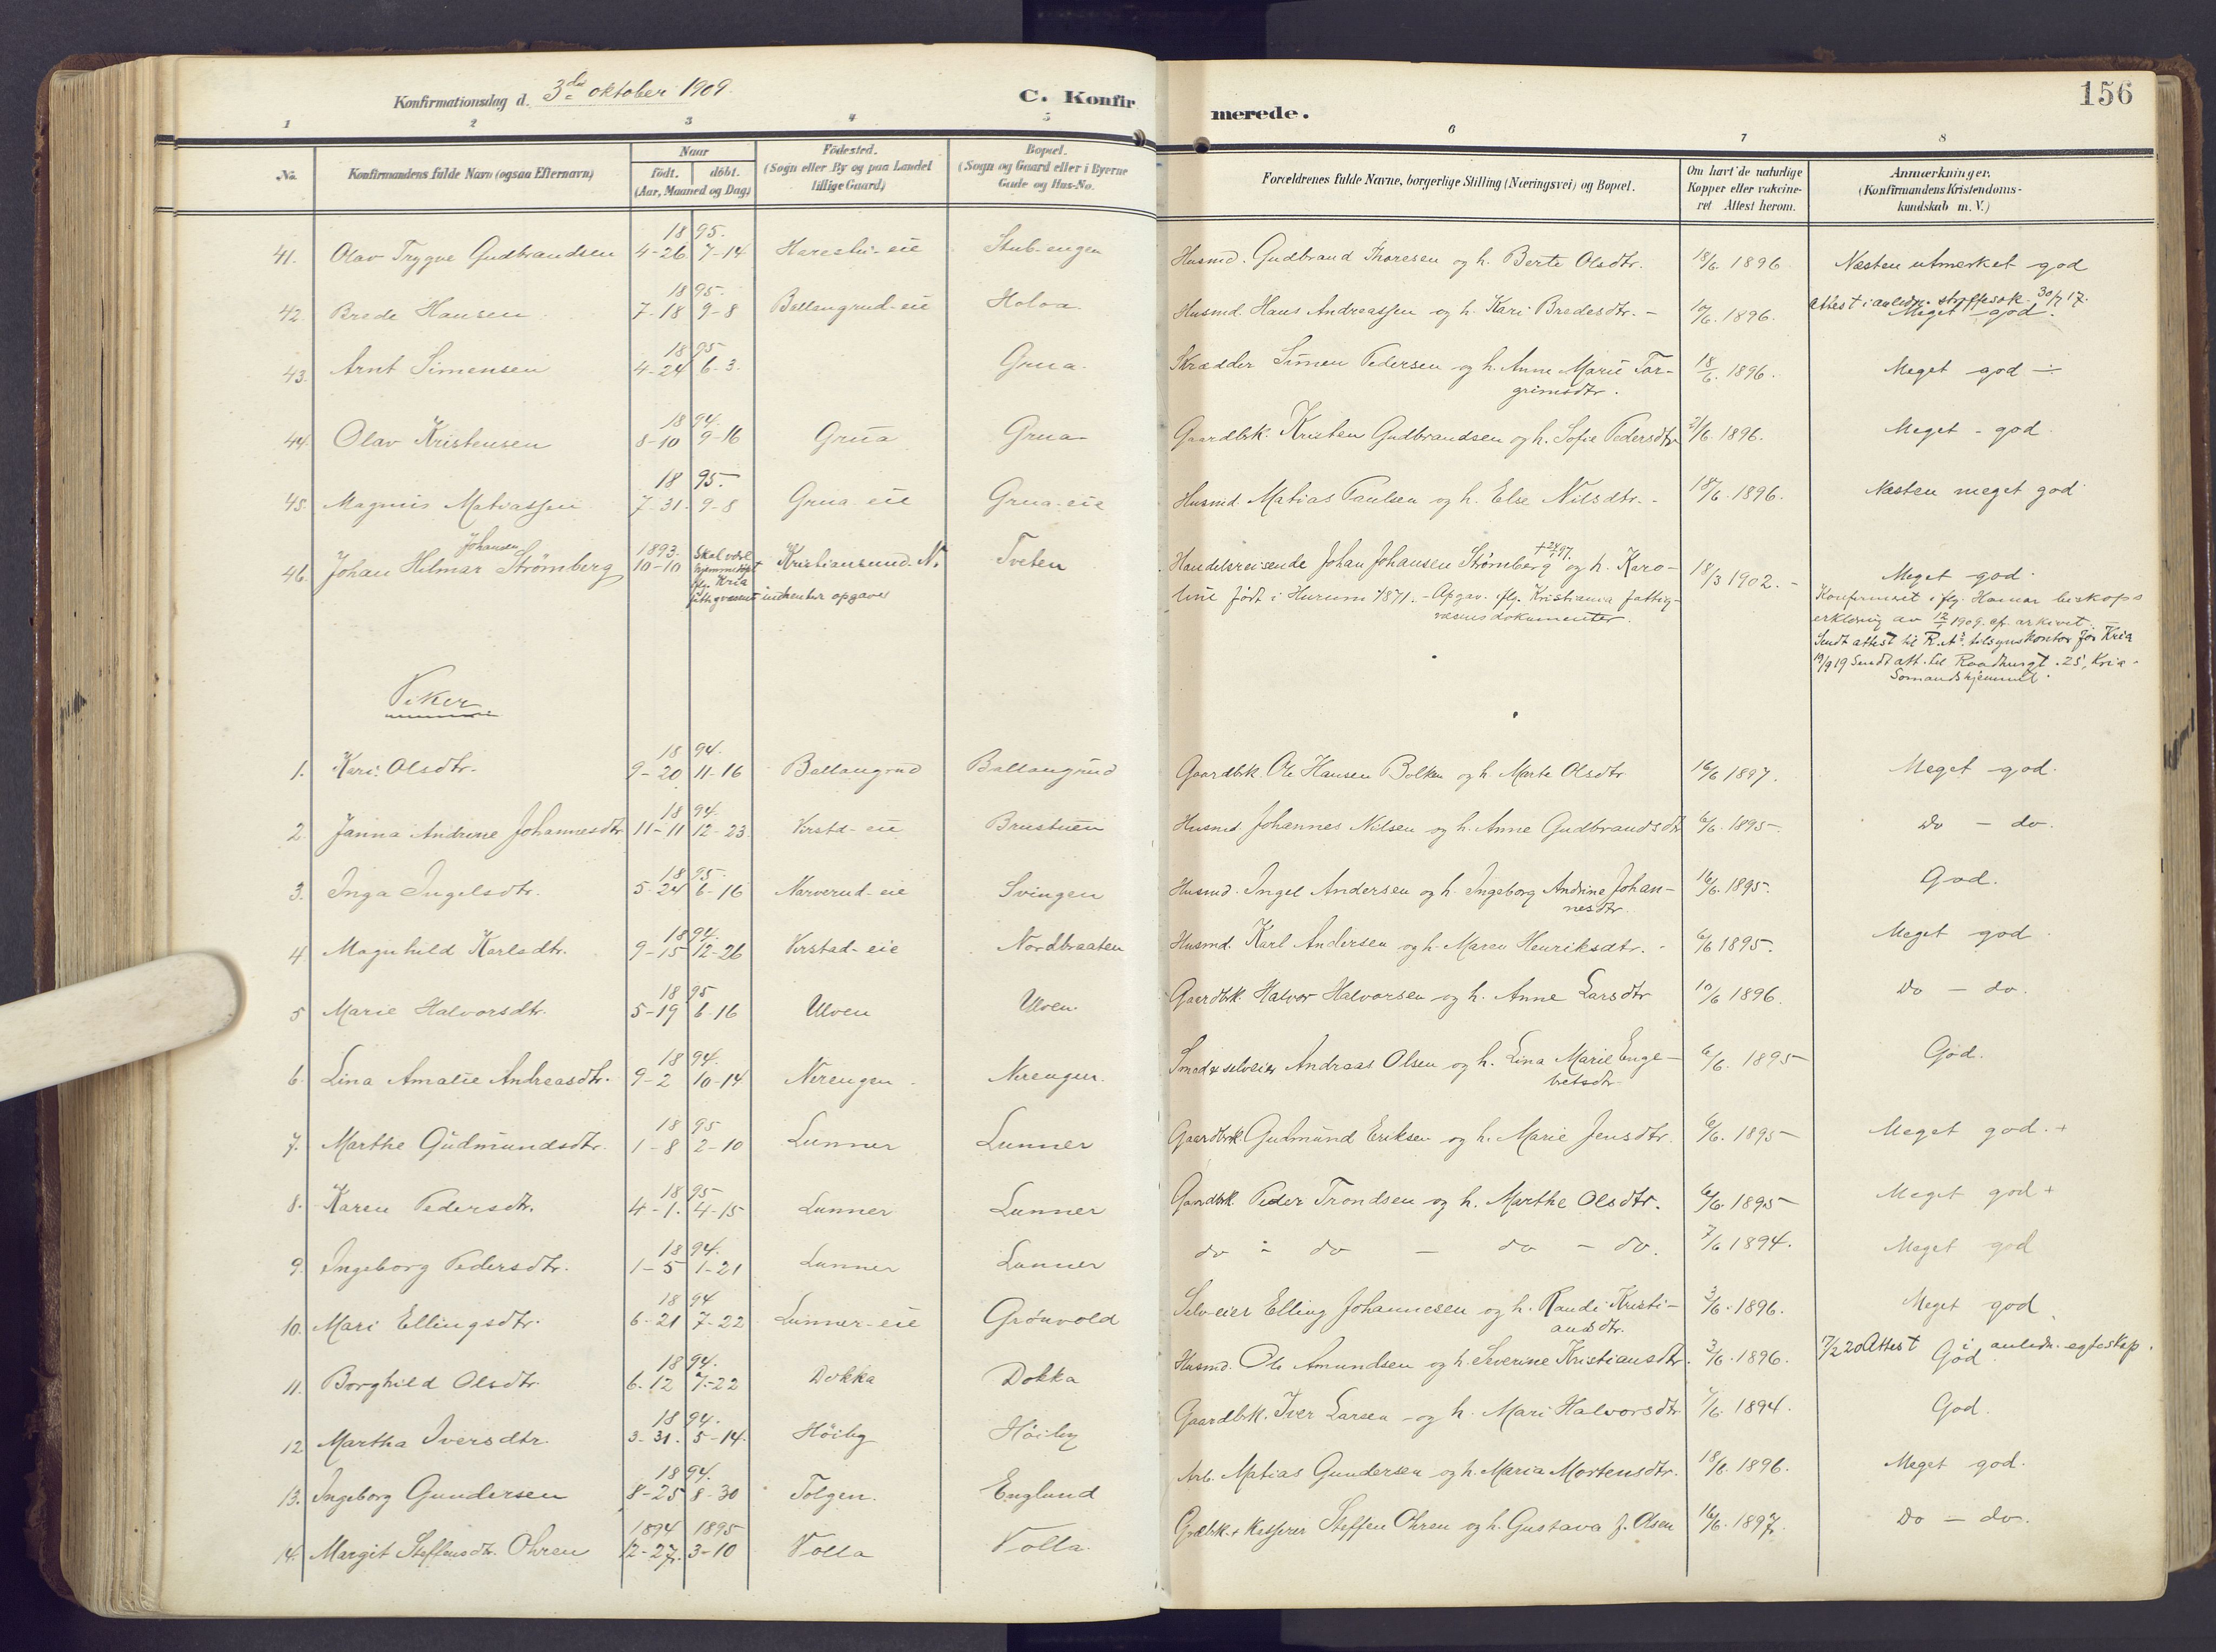 Konfirmationsdag d. 3die oktober 1909. C. Konfirmerede. 156
1 2 3 4 5 6 7 8
No. Konfirmandens fulde Navn (ogsaa Efternavn) Naar født. døbt. (Aar, Maaned og Dag) Fødested. (Sogn eller By og paa Landet tillige Gaard) Bopæl. (Sogn og Gaard eller i Byerne Gade og Hus-No. Forældrenes fulde Navne, borgerlige Stilling (Næringsvei) og Bopæl. Om havt de naturlige Kopper eller vakcineret Attest herom. Anmærkninger. (Konfirmandens Kristendomskundskab m. V.)
41. Olav Trygve Gudbrandsen 1895. 4-26 7-14 Harestu-eie Stub-engen Husmd. Gudbrand Thoresen og h. Berte Olsdtr. 18/6 1896 Næsten utmerket god
42. Brede Hansen 1895. 7-18 9-8 Ballangrud-eie Holoa Husmd. Hans Andreassen og h. Kari Bredesdtr. - 10/6. 1896. Attest i anledn. straffesak 30/7 17. Meget god.
43. Arnt Simensen 1895 4-24 6-3. Grua. Skrædder Simen Pedersen og h. Anne Marie Torgrimsdtr. 18/6. 1896. Meget god -:-
44. Olav Kristensen 1894. 8-10 9-16 Grua Grua Gaardbrk. Kristen Gudbrandsen og h. Sofie Pedersdtr 3/6. 1896. Meget - god.
45. Magnus Matiassen 1895. 7-31. 9-8 Grua-eie Grua-eie Husmd. Matias Paulsen og h. Else Nilsdtr. - 18/6. 1896. Næsten meget god
46. Johan Hilmar Johansen Strømberg 1893. 10-10 Skal være hjemmedøpt iflg. Kria fattigvæsens indhentede opgaver Kristiansund. N. Tveten Handelsreisende Johan Johansen Strømberg + 24/1 97. og h. Karoline født i Hurum 1871. - Opgav. iflg. Kristiania fattigvæsens dokumenter. 18/3 1902. - Meget god.
Konfirmert iflg. Hamar biskops
erklæring av 12/1 1909. cfr. arkivet. -
Sendt attest til R.et. tilsynskontor for Kria
19/9 19 Sendt att. til Raadhusgt. 25, Kria.
Sømandshjemmet.
Piker
1. Kari Olsdtr. 1894. 9-20 11-16 Ballangrud Ballangrud Gaardbrk. Ole Hansen Bolken og h. Marte Olsdtr 16/6 1897. Meget god.
2. Janna Andrine Johannesdtr 1894. 11-11 12-23 Kirstd-eie Brustuen Husmd Johannes Nilsen og h. Anne Gudbrandsdtr 6/6. 1895. Do - do.
3. Inga Ingelsdtr. 1895. 5-24 6-16 Narverud-eie Svingen Husmd. Ingel Andersen og h. Ingeborg Andrine Johannesdtr. 16/6. 1895. God.
4 Magnhild Karlsdtr. 1894. 9-15 12-26 Kirstad-eie Nordbraaten Husmd. Karl Andersen og h. Maren Henriksdtr. - 6/6 1895. Meget god
5 Marie Halvorsdtr. 1895 5-19 6-16 Ulven Ulven. Gaardbrk. Halvor Halvorsen og h. Anne Larsdtr 10/6 1896. Do - do.
6. Lina Amalie Andreasdtr. 1894. 9-2 10-14 Nerengen Nerengen. Smed & selveier Andreas Olsen og h. Lina Marie Engebretsdtr 6/6. 1895 God.
7. Marthe Gudmundsdtr. 1895 1-8 2-10 Lunner Lunner Gaardbrk. Gudmund Eriksen og h. Marie Jensdtr. 6/6. 1895 Meget god. +
8. Karen Pedersdtr. 1895 4-1. 4-15 Lunner Lunner Gaardbrk. Peder Trondsen og h. Marthe Olsdtr. 6/6. 1895 Meget god +
9. Ingeborg Pedersdtr. 1894. 1-5 1-21 Lunner Lunner do - do - do - do. 7/6 1894. Meget god
10. Mari Ellingsdtr. 1894 6-21 7-22 Lunner-eie Grønvold Selveier Elling Johannesen og h. Randi Kristiansdtr. 3/6. 1896. Meget god
11. Borghild Olsdtr. 1894. 6-12 7-22 Dokka Dokka Husmd. Ole Amundsen og h. Severine Kristiansdtr. 3/6. 1896. 7/2 20 Attest i anledn. egteskap. God
12 Martha Iversdtr. 1894. 3-31. 5-14. Høiby Høiby Gaardbrk. Iver Larsen og h. Mari Halvorsdtr 7/6. 1894. God.
13. Ingeborg Gundersen 1894. 8-25 8-30 Tolgen. Englund Arb. Matias Gundersen og h. Maria Mortensdtr. 18/6. 1896. Meget god.
14. Margit Steffensdtr. Ohren 1894 12-27. 1895 3-10 Volla Volla. Grdbrk. + Kasserer Steffen Ohren og h. Gustava f. Olsen 16/6. 1897. Do - do.